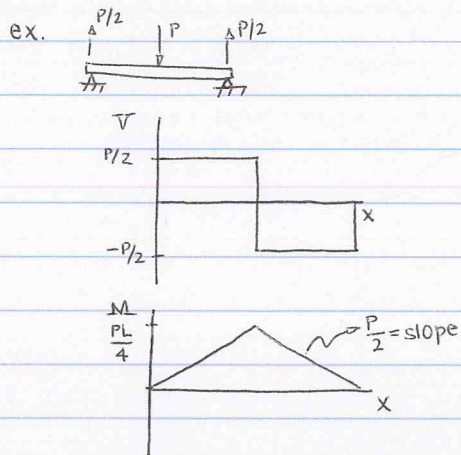 ex.
P/2 P P/2
V
P/2
x
-P/2
M
PL/4
P/2 = slope
x